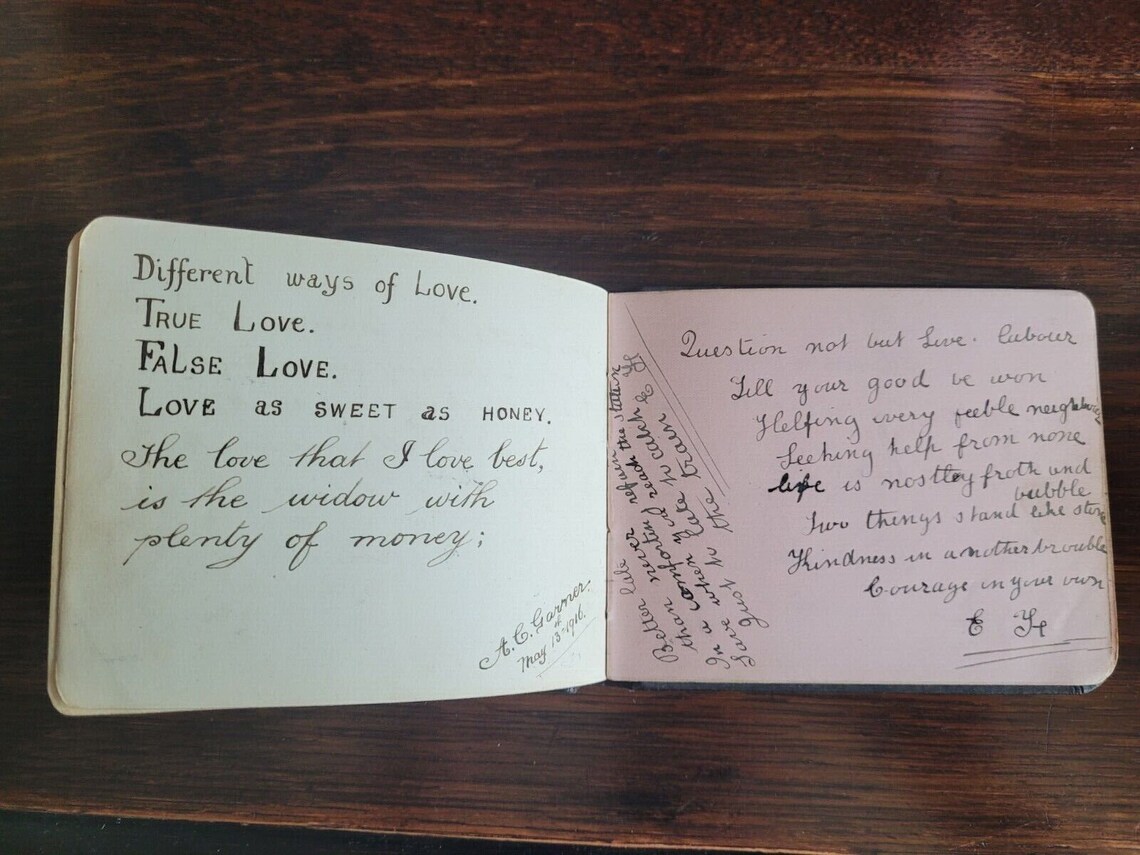 Different ways of Love.
TRUE LOVE.
FALSE LOVE.
LOVE as SWEET as HONEY.
The love that I love best,
is the widow with
plenty of money;
A. C. Garner.
May 13th 1916.
Question not but Live. labour
Till your good be won
Helping every feeble neighbour
Seeking help from none
life is mostley froth and
bubble
Two things stand like stone
Kindness in another trouble
Courage in your own
E
Better late never
than
In a when you
Save when late to catch
Just to the train